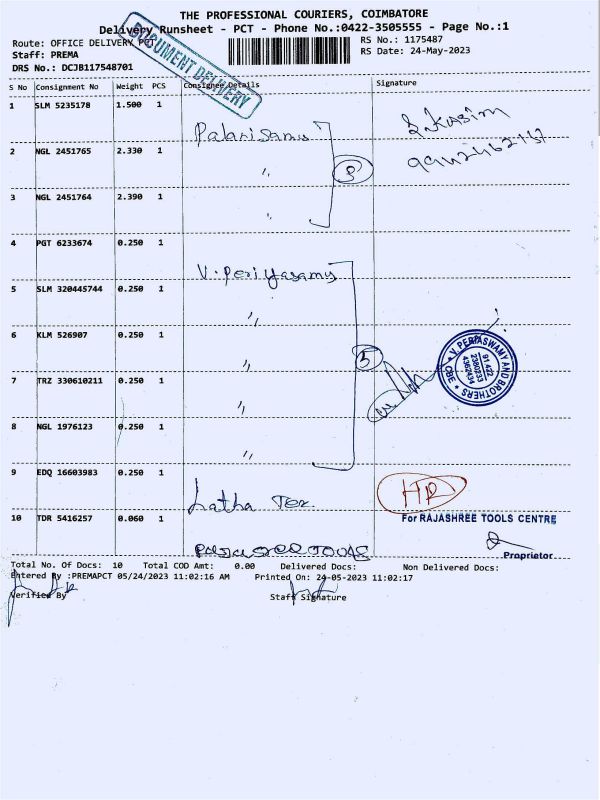 THE PROFESSIONAL COURIERS, COIMBATORE
Delivery Runsheet - PCT - Phone No.:0422-3505555 - Page No.:1
Route: OFFICE DELIVERY PCT
RS No.: 1175487
Staff: PREMA
RS Date: 24-May-2023
DRS No.: DCJB117548701
DOCUMENT DELIVERY
S No Consignment No Weight PCS Consignee Details Signature
1 SLM 5235178 1.500 1
Palanisamy
S. Kasim
2 NGL 2451765 2.330 1
,,
3
3 NGL 2451764 2.390 1
,,
4 PGT 6233674 0.250 1
V. Periyasamy
5 SLM 320445744 0.250 1
,,
6 KLM 526907 0.250 1
,,
5
V. PERIASWAMY AND BROTHERS
91 422
2380233
4362434
★ CBE ★
7 TRZ 330610211 0.250 1
,,
8 NGL 1976123 0.250 1
,,
9 EDQ 16603983 0.250 1
Latha Tex
HD
10 TDR 5416257 0.060 1
For RAJASHREE TOOLS CENTRE
Proprietor
Total No. Of Docs: 10 Total COD Amt: 0.00 Delivered Docs: Non Delivered Docs:
Entered By :PREMAPCT 05/24/2023 11:02:16 AM Printed On: 24-05-2023 11:02:17
Verified By Staff Signature